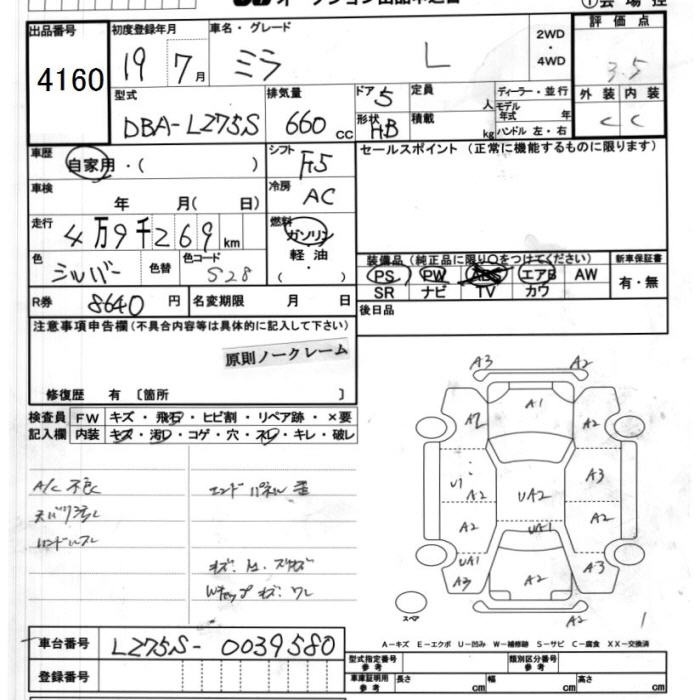 オークション出品申込書
①会場控
出品番号 初度登録年月 車名・グレード 2WD・4WD 評価点
4160 19 7月 ミラ L 3.5
型式 排気量 ドア 5 定員 人 ディーラー・並行 外装 内装
DBA-LZ75S 660 cc 形状 HB 積載 kg モデル年式 年 ハンドル 左・右 C C
車歴 自家用・( ) シフト F5 セールスポイント (正常に機能するものに限ります)
車検 年 月( 日) 冷房 AC
走行 4万9千269km 燃料 ガソリン 軽油・( )
色 シルバー 色替 色コード S28
装備品(純正品に限り○をつけてください) 新車保証書
PS PW ABS エアB AW 有・無
SR ナビ TV カワ
R券 8640 円 名変期限 月 日 後日品
注意事項申告欄(不具合内容等は具体的に記入して下さい)
原則ノークレーム
修復歴 有 〔箇所 〕
検査員 FW キズ・飛石・ヒビ割・リペア跡・×要
記入欄 内装 キズ・汚レ・コゲ・穴・スレ・キレ・破レ
A/C 不良 エンドパネル 歪
ハンドルスレ
A3 A2
A1
A2 A2
U1 A2 UA2 A3
A2 UA1 A2
UA1 A3 A2 A3
スペア A2 1
A-キズ E-エクボ U-凹み W-補修跡 S-サビ C-腐食 XX-交換済
車台番号 LZ75S-0039580
登録番号
型式指定番号 参考 類別区分番号 参考
車庫証明用 参考 長さ cm 幅 cm 高さ cm